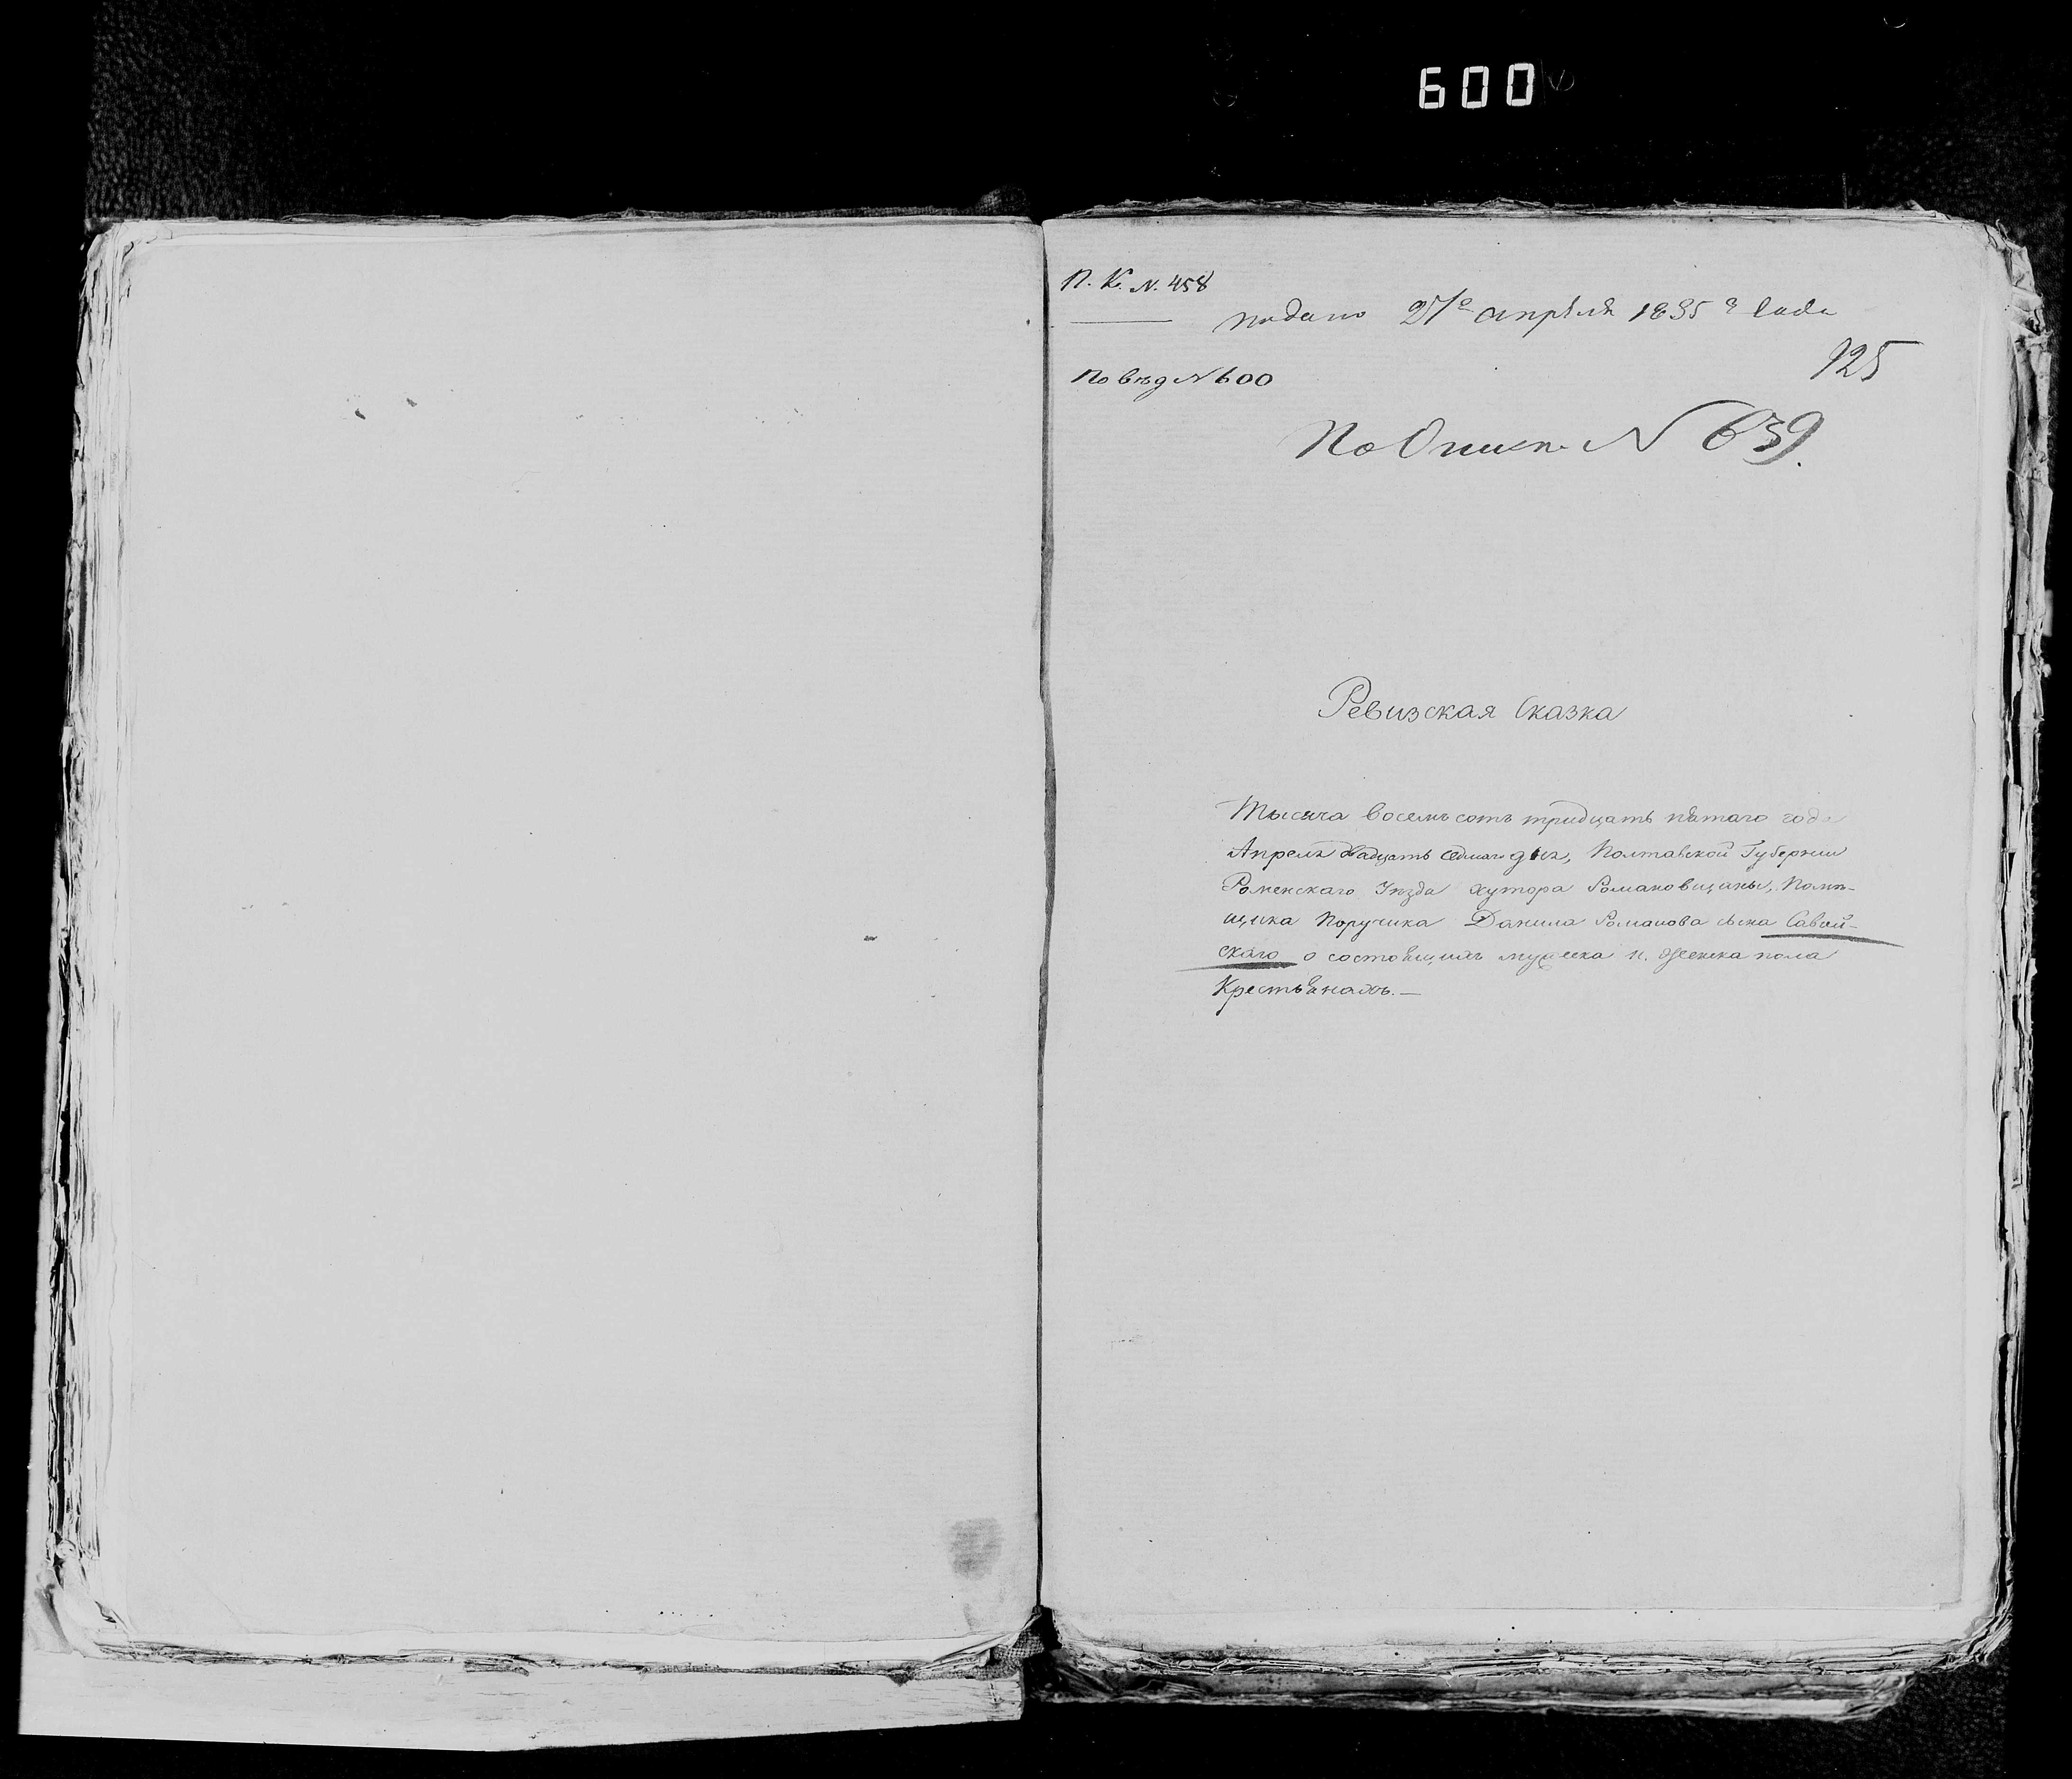 600
П. К. N. 458
подано 27го апреля 1835 г года
125
По вед N 600
По Описи N 639.
Ревизская Сказка
Тысяча восемь сотъ тридцать пятаго года
Апреля двадцать седмаго дня, Полтавской Губернии
Роменскаго Уѣзда хутора Романовщины, Помѣ-
щика Поручика Данила Романова сына Савой-
скаго о состоящихъ мужеска и. женска пола
Крестьянахъ. —